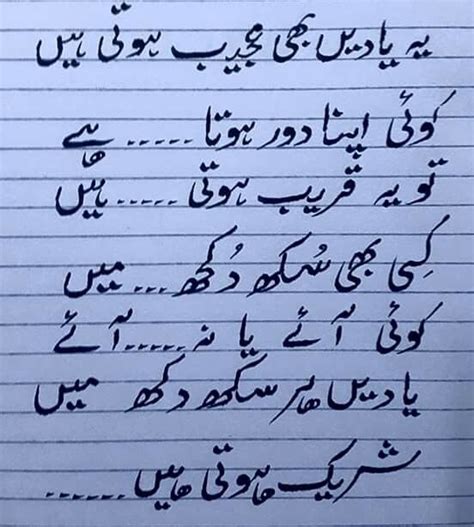 یہ یادیں بھی عجیب ہوتی ہیں
کوئی اپنا دور ہوتا ..... ہے
تو یہ قریب ہوتی ..... ہیں
کسی بھی سُکھ دُکھ ... میں
کوئی آئے یا نہ ..... آئے
یادیں ہر سکھ دکھ میں
شریک ہوتی ہیں ......